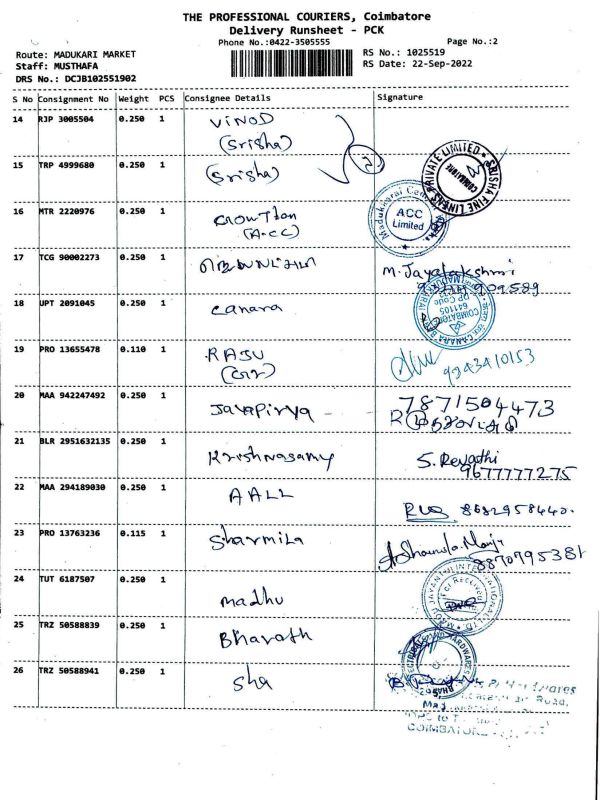 THE PROFESSIONAL COURIERS, Coimbatore
Delivery Runsheet - PCK
Phone No.:0422-3505555
Page No.:2
Route: MADUKARI MARKET
Staff: MUSTHAFA
DRS No.: DCJB102551902
RS No.: 1025519
RS Date: 22-Sep-2022
S No Consignment No Weight PCS Consignee Details Signature
14 RJP 3005504 0.250 1 VINOD
(Srisha)
15 TRP 4999680 0.250 1 (Srisha)
PRIVATE LIMITED * SRISHA FINE LINENS
COIMBATORE
16 MTR 2220976 0.250 1 Crowtion
(A.CC)
ACC
Limited
17 TCG 90002273 0.250 1 M. Jayalakshmi
18 UPT 2091045 0.250 1 Canara
CANARA BANK
DP Code
641105
COIMBATORE
19 PRO 13655478 0.110 1 RAJU
9943410153
20 MAA 942247492 0.250 1 Jayapirya -
7871504473
21 BLR 2951632135 0.250 1 Krishnasamy
S. Revathi
9677777275
22 MAA 294189030 0.250 1 AALL
8682958440.
23 PRO 13763236 0.115 1 Sharmila
8870795381
24 TUT 6187507 0.250 1 madhu
For Received
25 TRZ 50588839 0.250 1 Bharath
26 TRZ 50588941 0.250 1 Sha
COIMBATORE